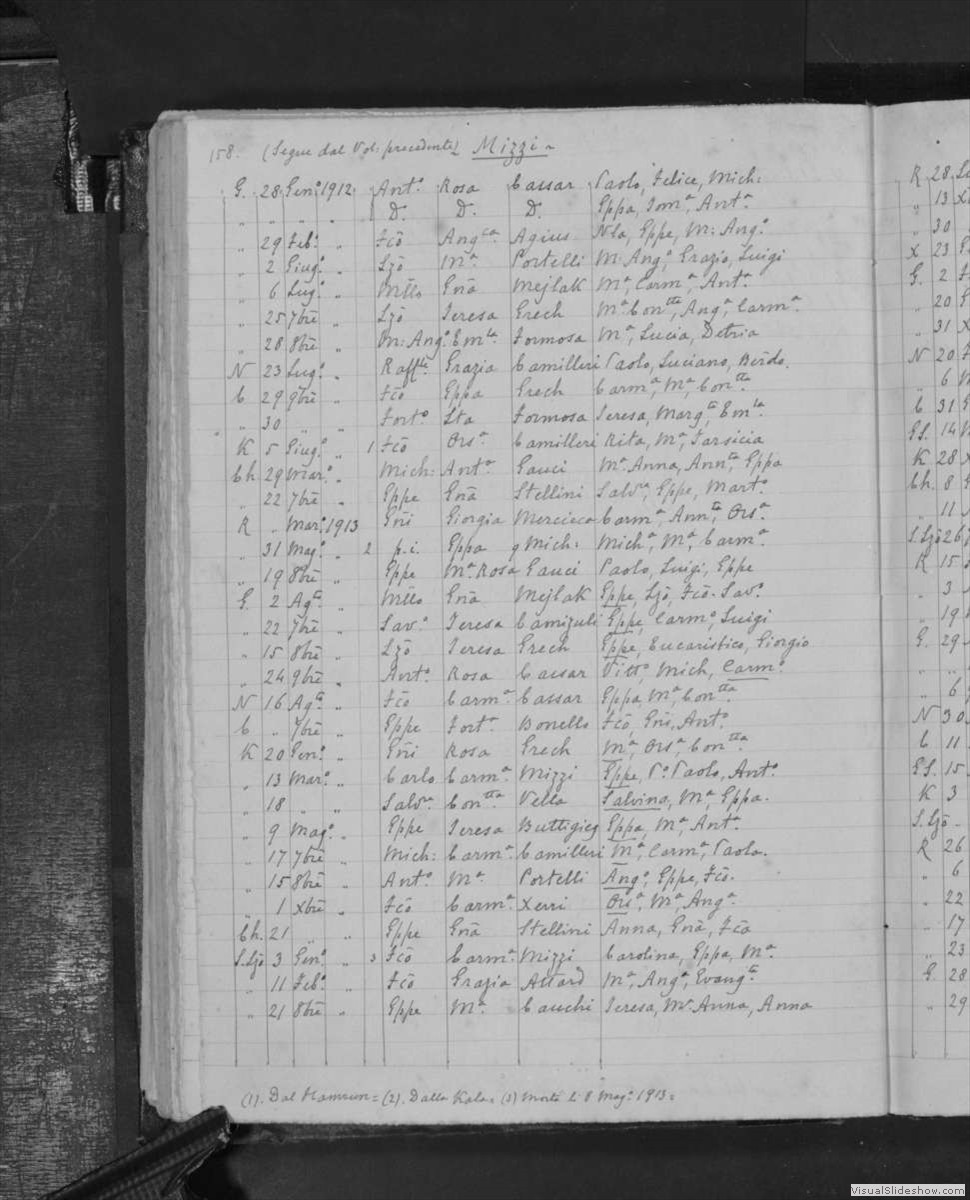 158. (Segue dal Vol: precedente) Mizzi
G. 28 Gen.º 1912 Ant.º Rosa Cassar Paolo, Felice, Mich:
„ „ „ „ D. D. D. Eppa, Tom.ª, Ant.ª
„ 29 Feb.º „ Fcõ Ang.ca Agius Nla, Eppe, M: Ang.º
„ 2 Giug.º „ Ljõ M.ª Portelli M: Ang.ª, Grazio, Luigi
„ 6 Lug.º „ Mejlak M.ª, Carm.ª, Ant.ª
„ 25 7bre „ Ljõ Teresa Grech M.ª Con.tta, Ang.ª, Carm.ª
„ 28 8bre „ M: Ang.º Em.la Formosa M.ª, Lucia,
N 23 Lug.º „ Raff.le Grazia Camilleri Paolo, Luciano, Berdo.
C 29 9bre „ Fcõ Eppa Grech Carm.ª, M.ª, Con.tta
„ 30 „ „ Fort.º Formosa Teresa, Marg.ta, Em.la
K 5 Giug.º „ 1 Fcõ Ors.ª Camilleri Rita, M.ª, Tarsicia
Ch. 29 Mar.º „ Mich: Ant.ª Gauci M.ª Anna, Ann.tta, Eppa
„ 22 7bre „ Eppe Gnã Stellini Salv.ra, Eppe, Mart.º
R „ Mar.º 1913 Gñi Giorgia Mercieca Carm.ª, Ann.tta, Ors.ª
„ 31 Mag.º „ 2 p.i. Eppa q Mich: Mich.ª, M.ª, Carm.ª
„ 19 8bre „ Eppe M.ª Rosa Gauci Paolo, Luigi, Eppe
G. 2 Ag.to „ Gnã Mejlak Eppe, Ljõ, Fcõ. Sav.º
„ 22 7bre „ Sav.º Teresa Camizuli Eppe, Carm.º, Luigi
„ 15 8bre „ Ljõ Teresa Grech Eppe, Eucaristico, Giorgio
„ 24 9bre „ Ant.º Rosa Cassar Vitt.º, Mich, Carm.º
N 16 Ag.to „ Fcõ Carm.ª Cassar Eppa, M.ª, Con.tta
C „ 7bre „ Eppe Fort.ª Bonello Fcõ, Gñi, Ant.º
K 20 Gen.º „ Gñi Rosa Grech M.ª, Ors.ª, Con.tta
„ 13 Mar.º „ Carlo Carm.ª Mizzi Eppe, P.º Paolo, Ant.º
„ 18 „ „ Salv.re Con.tta Vella Salvina, M.ª, Eppa.
„ 9 Mag.º „ Eppe Teresa Buttigieg Eppa, M.ª, Ant.ª
„ 17 7bre „ Mich: Carm.ª Camilleri M.ª, Carm.ª, Paola.
„ 15 8bre „ Ant.º M.ª Portelli Ang.º, Eppe, Fcõ.
„ 1 Xbre „ Fcõ Carm.ª Xerri Ors.ª, M.ª, Ang.ª
Ch. 21 „ „ Eppe Gnã Stellini Anna, Gnã, Fcã
S.Ljõ 3 Gen.º „ 3 Fcõ Carm.ª Mizzi Carolina, Eppa, M.ª
„ 11 Feb.º „ Fcõ Grazia Attard M.ª, Ang.ª, Evang.ta
„ 21 8bre „ Eppe M.ª Cauchi Teresa, M.ª Anna, Anna
(1). Dal Hamrun = (2). Dalla Kala = (3) Morto li 8 Mag.º 1913 =
R 28
„ 13
„ 30
X 23
G. 2
„ 20
„ 31
N 20
„ 6
C 31
14
K 28
Ch. 8
„ 11
S.Ljõ 26
R 15
„ 3
„ 19
G. 29
„ „
„ 6
N 30
C 11
15
K 3
S.Ljõ
R 26
„ 6
„ 22
„ 17
„ 23
G. 28
„ 29
VisualSlideshow.com